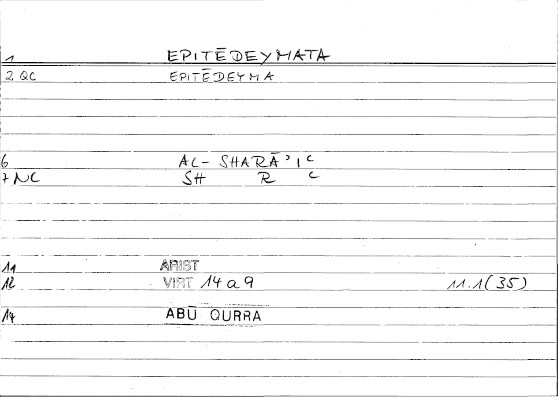 1 EPITĒDEYMATA
2 QC EPITĒDEYMA
6 AL-SHARĀʾIʿ
7 NC SH R ʿ
11 ARIST
12 VIRT 14 a 9 11.1(35)
14 ABŪ QURRA